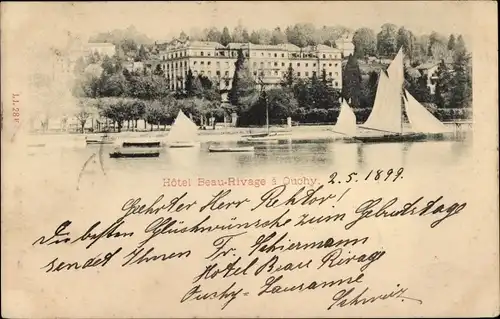 Hôtel Beau-Rivage à Ouchy. 2. 5. 1899.
Geehrter Herr Rektor!
Die besten Glückwünsche zum Geburtstage
sendet Ihnen Fr. Schiermann
Hotel Beau Rivage
Ouchy-Lausanne
Schweiz